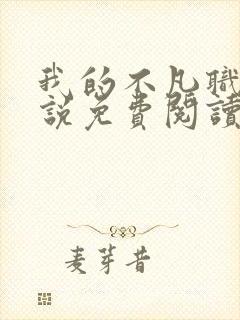 我的不凡職
說免費閱讀
麦芽昔